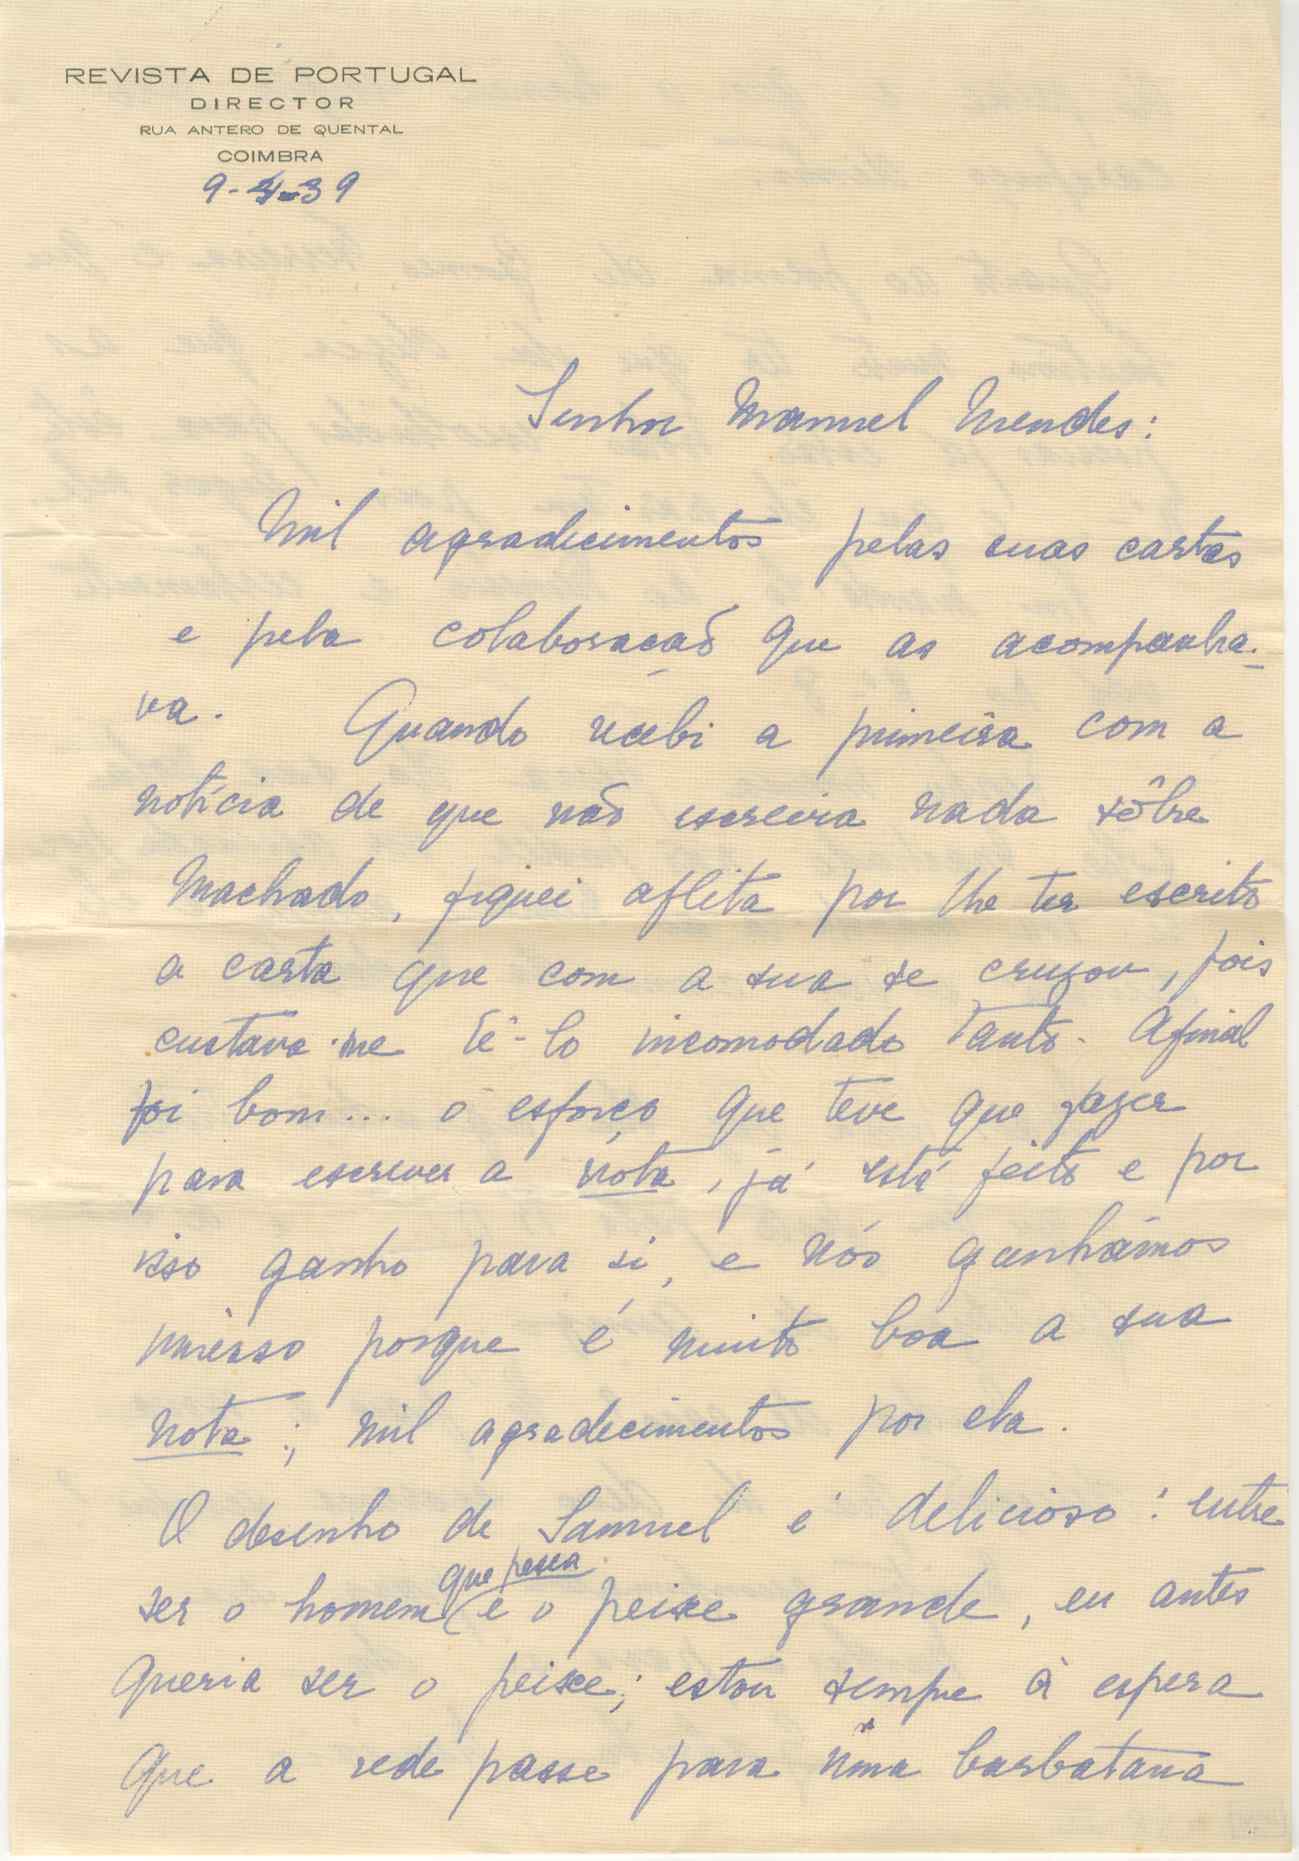 REVISTA DE PORTUGAL
DIRECTOR
RUA ANTERO DE QUENTAL
COIMBRA
9-4-39
Senhor Manuel Mendes:
Mil agradecimentos pelas suas cartas
e pela colaboração que as acompanha-
va. Quando recebi a primeira com a
notícia de que não escreveria nada sôbre
Machado, fiquei aflita por lhe ter escrito
a carta que com a sua se cruzou, pois
custava-me tê-lo incomodado tanto. Afinal
foi bom... o esforço que teve que fazer
para escrever a nota, já está feito e por
isso ganho para si, e nós ganhámos
imenso porque é muito boa a sua
nota; mil agradecimentos por ela.
O desenho de Samuel é delicioso: entre
ser o homem que pesca e o peixe grande, eu antes
queria ser o peixe; estou sempre à espera
que a rede passe para uma barbatana